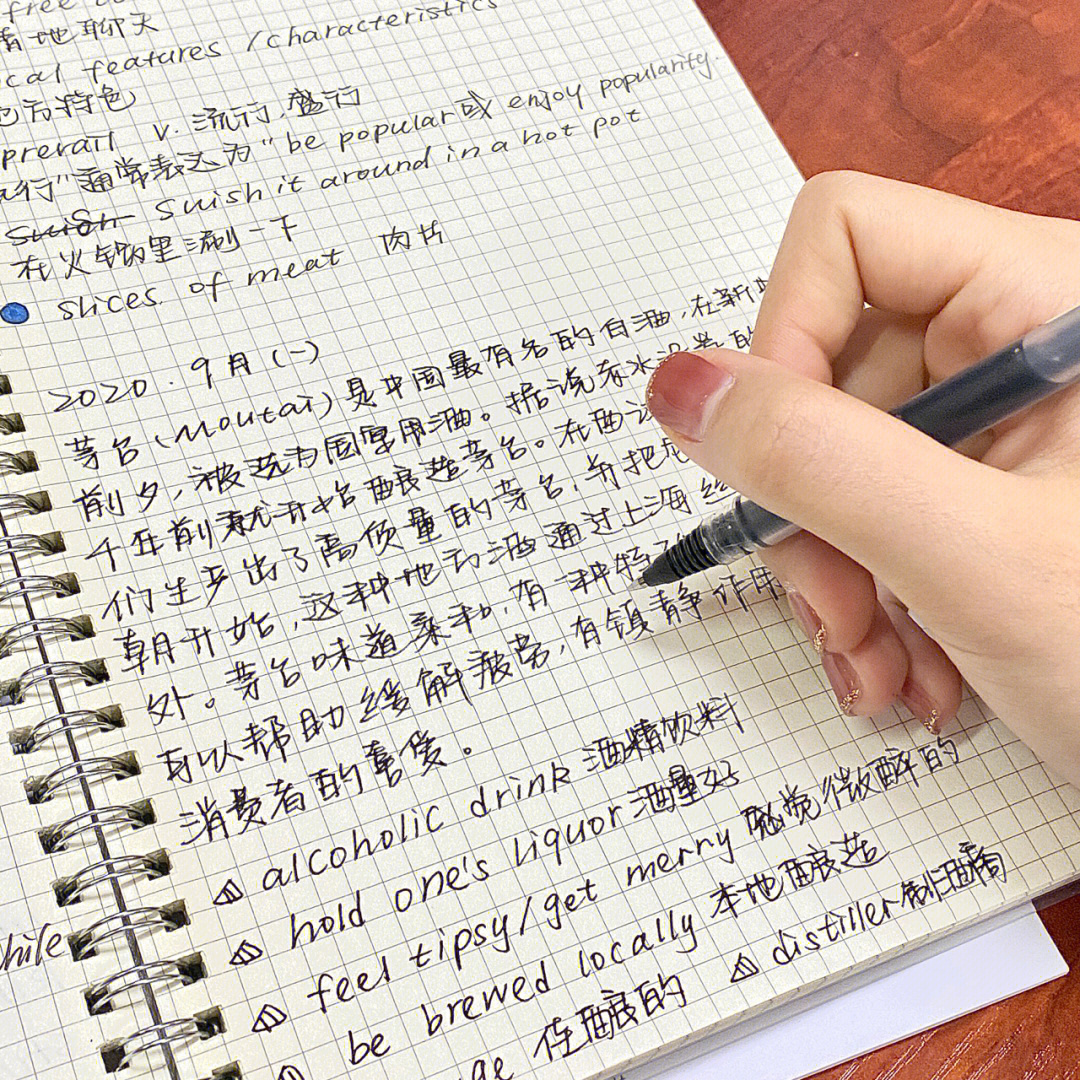 free
着地聊天
cal features / characteristics
地方特色
prevail v. 流行, 盛行
流行"通常表达为"be popular或 enjoy popularity.
swish it around in a hot pot
在火锅里涮一下
slices of meat 肉片
2020.9月(一)
茅台(Moutai)是中国最有名的白酒,在新
前夕,被选为国宴用酒。据说赤水沿岸的
千年前就开始酿造茅台。在西汉
们生产出了高质量的茅台,并把
朝开始,这种地方酒通过上海丝
外。茅台味道柔和,有一种特
可以帮助缓解疲劳,有镇静作用
消费者的喜爱。
alcoholic drink 酒精饮料
hold one's liquor 酒量好
feel tipsy/get merry 感觉微醉的
be brewed locally 本地酿造
distiller 制酒商
ge 佳酿的
hile